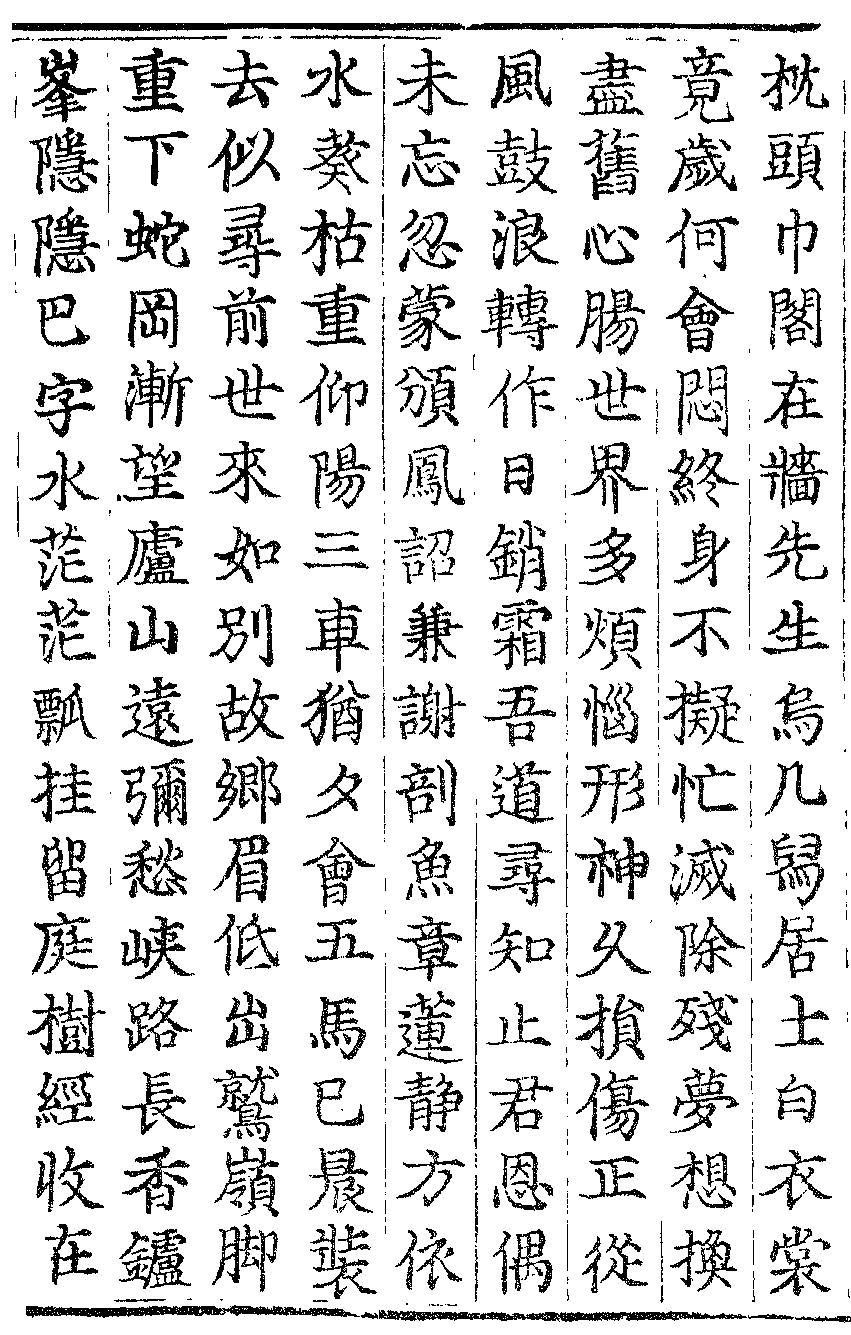 枕頭巾閣在牆先生烏几舄居士白衣裳
竟歲何會悶終身不擬忙滅除殘夢想換
盡舊心腸世界多煩惱形神久損傷正從
風鼓浪轉作日銷霜吾道尋知止君恩偶
未忘忽蒙頒鳳詔兼謝剖魚章蓮静方依
水葵枯重仰陽三車猶夕會五馬已晨裝
去似尋前世來如別故鄉眉低出鷲嶺脚
重下蛇岡漸望廬山遠彌愁峽路長香鑪
峯隱隱巴字水茫茫瓢挂留庭樹經收在